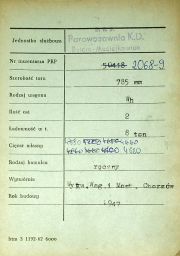 Jednostka służbowa
Parowozownia K.D.
Nr inwentarza PKP 50418 2068-9
Szerokość toru 785 mm
Rodzaj wagonu Wh
Ilość osi 2
Ładowność w t. 8 ton
Ciężar własny
4600 4620
Rodzaj hamulca ręczny
Wytwórnia Wytw. Wag. i Most. Chorzów
Rok budowy 1947